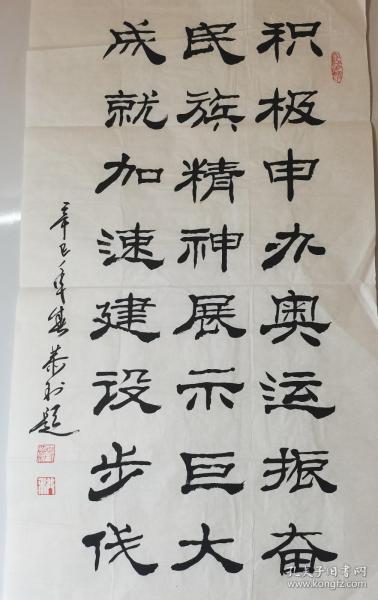 积极申办奥运振奋
民族精神展示巨大
成就加速建设步伐
辛巳年
题
孔夫子旧书网
www.kongfz.com